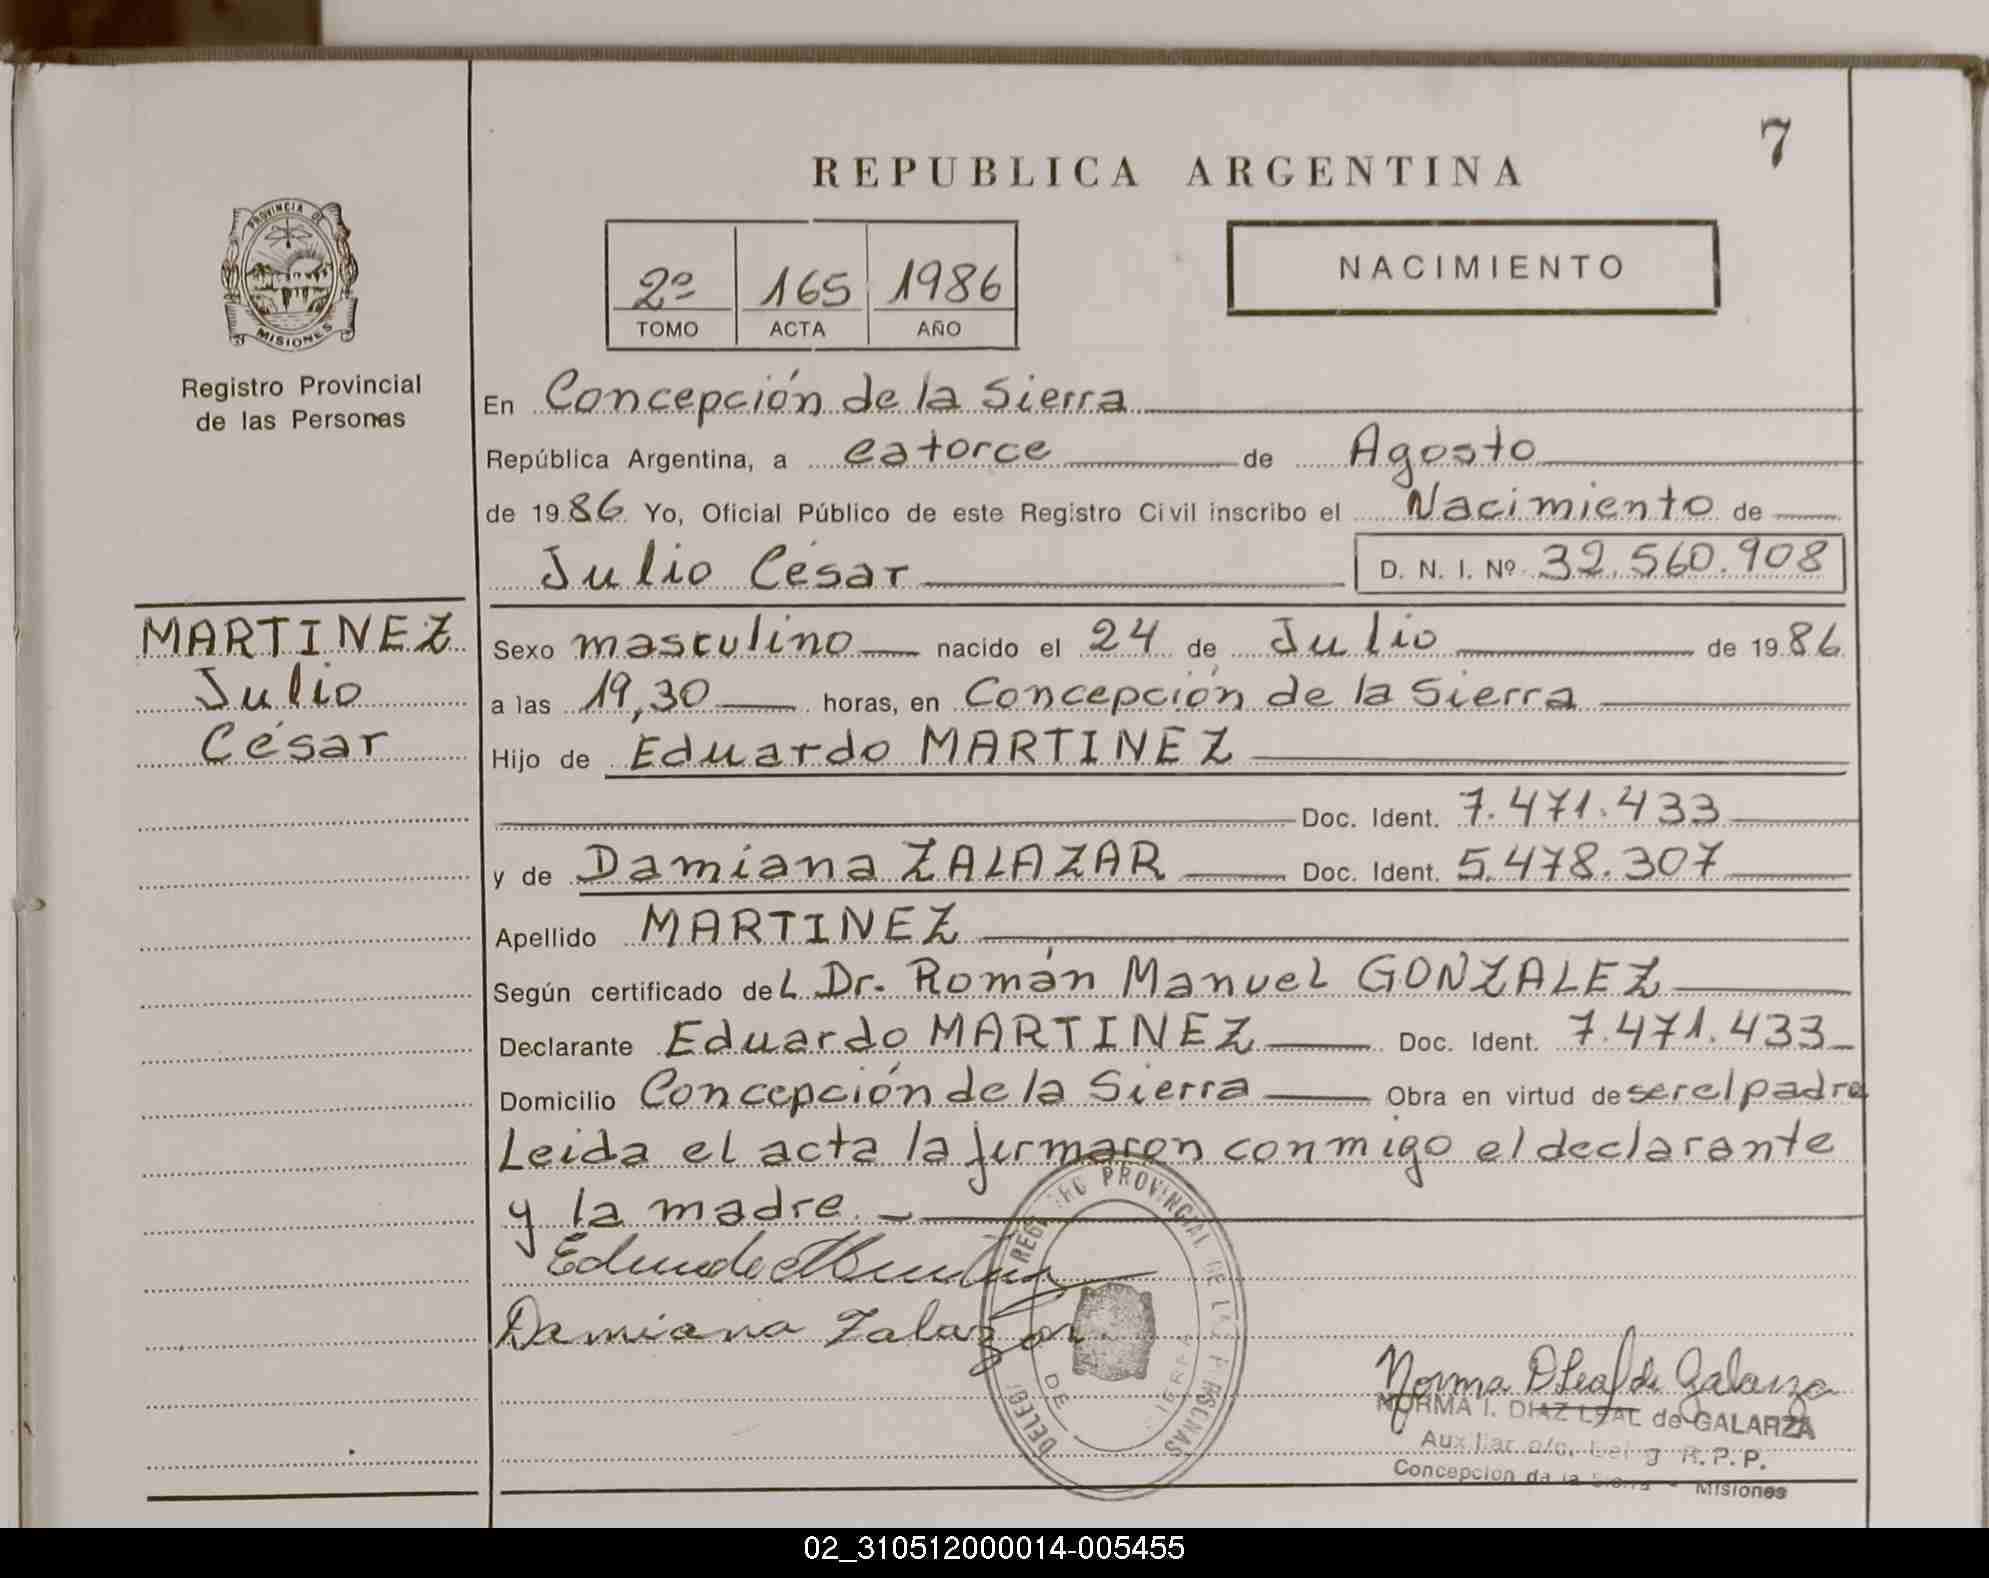 7
REPUBLICA ARGENTINA
PROVINCIA DE
MISIONES
Registro Provincial
de las Personas
2º 165 1986
TOMO ACTA AÑO
NACIMIENTO
En Concepción de la Sierra
República Argentina, a catorce de Agosto
de 1986 Yo, Oficial Público de este Registro Civil inscribo el Nacimiento de
Julio César D. N. I. Nº 32.560.908
MARTINEZ
Julio
César
Sexo masculino nacido el 24 de Julio de 1986
a las 19,30 horas, en Concepción de la Sierra
Hijo de Eduardo MARTINEZ
Doc. Ident. 7.471.433
y de Damiana ZALAZAR Doc. Ident. 5.478.307
Apellido MARTINEZ
Según certificado del Dr. Román Manuel GONZALEZ
Declarante Eduardo MARTINEZ Doc. Ident. 7.471.433
Domicilio Concepción de la Sierra Obra en virtud de ser el padre
Leida el acta la firmaron conmigo el declarante
y la madre.
Eduardo Martinez
Damiana Zalazar
REGISTRO PROVINCIAL DE LAS PERSONAS
DE
Norma D Leal de Galarza
NORMA I. DIAZ LEAL de GALARZA
Auxiliar a/c. Deleg R.P.P.
Concepcion de la Sierra - Misiones
02_310512000014-005455